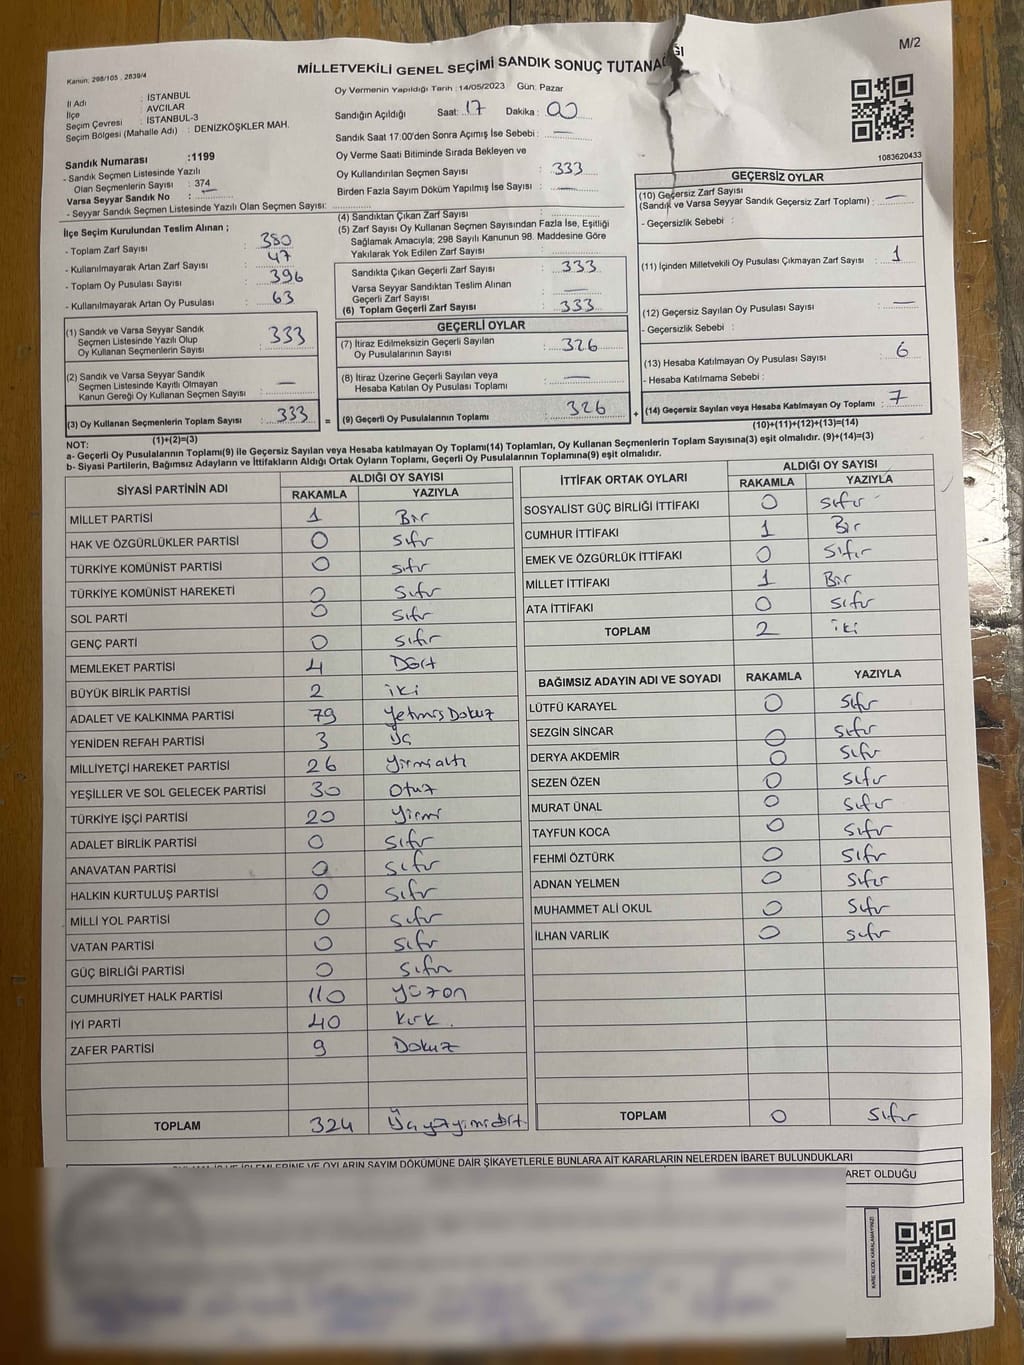 MİLLETVEKİLİ GENEL SEÇİMİ SANDIK SONUÇ TUTANAĞI
M/2
Kanun: 298/105 , 2839/4
İl Adı : İSTANBUL
İlçe : AVCILAR
Seçim Çevresi : İSTANBUL-3
Seçim Bölgesi (Mahalle Adı) : DENİZKÖŞKLER MAH.
Sandık Numarası :1199
- Sandık Seçmen Listesinde Yazılı
Olan Seçmenlerin Sayısı : 374
Varsa Seyyar Sandık No : —
- Seyyar Sandık Seçmen Listesinde Yazılı Olan Seçmen Sayısı:
Oy Vermenin Yapıldığı Tarih : 14/05/2023 Gün: Pazar
Sandığın Açıldığı Saat: 17 Dakika: 00
Sandık Saat 17:00'den Sonra Açımış İse Sebebi : —
Oy Verme Saati Bitiminde Sırada Bekleyen ve
Oy Kullandırılan Seçmen Sayısı : 333
Birden Fazla Sayım Döküm Yapılmış İse Sayısı : —
1083620433
İlçe Seçim Kurulundan Teslim Alınan ;
- Toplam Zarf Sayısı : 380
- Kullanılmayarak Artan Zarf Sayısı : 47
- Toplam Oy Pusulası Sayısı : 396
- Kullanılmayarak Artan Oy Pusulası : 63
(1) Sandık ve Varsa Seyyar Sandık
Seçmen Listesinde Yazılı Olup
Oy Kullanan Seçmenlerin Sayısı : 333
(2) Sandık ve Varsa Seyyar Sandık
Seçmen Listesinde Kayıtlı Olmayan
Kanun Gereği Oy Kullanan Seçmen Sayısı : —
(3) Oy Kullanan Seçmenlerin Toplam Sayısı : 333 =
(1)+(2)=(3)
(4) Sandıktan Çıkan Zarf Sayısı :
(5) Zarf Sayısı Oy Kullanan Seçmen Sayısından Fazla İse, Eşitliği
Sağlamak Amacıyla; 298 Sayılı Kanunun 98. Maddesine Göre
Yakılarak Yok Edilen Zarf Sayısı :
Sandıkta Çıkan Geçerli Zarf Sayısı : 333
Varsa Seyyar Sandıktan Teslim Alınan
Geçerli Zarf Sayısı : —
(6) Toplam Geçerli Zarf Sayısı : 333
GEÇERLİ OYLAR
(7) İtiraz Edilmeksizin Geçerli Sayılan
Oy Pusulalarının Sayısı : 326
(8) İtiraz Üzerine Geçerli Sayılan veya
Hesaba Katılan Oy Pusulası Toplamı : —
(9) Geçerli Oy Pusulalarının Toplamı : 326 +
GEÇERSİZ OYLAR
(10) Geçersiz Zarf Sayısı
(Sandık ve Varsa Seyyar Sandık Geçersiz Zarf Toplamı) : —
- Geçersizlik Sebebi :
(11) İçinden Milletvekili Oy Pusulası Çıkmayan Zarf Sayısı : 1
(12) Geçersiz Sayılan Oy Pusulası Sayısı : —
- Geçersizlik Sebebi :
(13) Hesaba Katılmayan Oy Pusulası Sayısı : 6
- Hesaba Katılmama Sebebi :
(14) Geçersiz Sayılan veya Hesaba Katılmayan Oy Toplamı : 7
(10)+(11)+(12)+(13)=(14)
NOT:
a- Geçerli Oy Pusulalarının Toplamı(9) ile Geçersiz Sayılan veya Hesaba Katılmayan Oy Toplamı(14) Toplamları, Oy Kullanan Seçmenlerin Toplam Sayısına(3) eşit olmalıdır. (9)+(14)=(3)
b- Siyasi Partilerin, Bağımsız Adayların ve İttifakların Aldığı Ortak Oyların Toplamı, Geçerli Oy Pusulalarının Toplamına(9) eşit olmalıdır.
SİYASİ PARTİNİN ADI ALDIĞI OY SAYISI
RAKAMLA YAZIYLA
MİLLET PARTİSİ 1 Bir
HAK VE ÖZGÜRLÜKLER PARTİSİ 0 sıfır
TÜRKİYE KOMÜNİST PARTİSİ 0 sıfır
TÜRKİYE KOMÜNİST HAREKETİ 0 sıfır
SOL PARTİ 0 sıfır
GENÇ PARTİ 0 sıfır
MEMLEKET PARTİSİ 4 Dört
BÜYÜK BİRLİK PARTİSİ 2 iki
ADALET VE KALKINMA PARTİSİ 79 YetmişDokuz
YENİDEN REFAH PARTİSİ 3 Üç
MİLLİYETÇİ HAREKET PARTİSİ 26 Yirmialtı
YEŞİLLER VE SOL GELECEK PARTİSİ 30 Otuz
TÜRKİYE İŞÇİ PARTİSİ 20 Yirmi
ADALET BİRLİK PARTİSİ 0 sıfır
ANAVATAN PARTİSİ 0 sıfır
HALKIN KURTULUŞ PARTİSİ 0 sıfır
MİLLİ YOL PARTİSİ 0 sıfır
VATAN PARTİSİ 0 sıfır
GÜÇ BİRLİĞİ PARTİSİ 0 sıfır
CUMHURİYET HALK PARTİSİ 110 Yüzon
İYİ PARTİ 40 Kırk.
ZAFER PARTİSİ 9 Dokuz
TOPLAM 324 Üçyüzyirmidört
İTTİFAK ORTAK OYLARI ALDIĞI OY SAYISI
RAKAMLA YAZIYLA
SOSYALİST GÜÇ BİRLİĞİ İTTİFAKI 0 sıfır
CUMHUR İTTİFAKI 1 Bir
EMEK VE ÖZGÜRLÜK İTTİFAKI 0 sıfır
MİLLET İTTİFAKI 1 Bir
ATA İTTİFAKI 0 sıfır
TOPLAM 2 iki
BAĞIMSIZ ADAYIN ADI VE SOYADI RAKAMLA YAZIYLA
LÜTFÜ KARAYEL 0 sıfır
SEZGİN SİNCAR 0 sıfır
DERYA AKDEMİR 0 sıfır
SEZEN ÖZEN 0 sıfır
MURAT ÜNAL 0 sıfır
TAYFUN KOCA 0 sıfır
FEHMİ ÖZTÜRK 0 sıfır
ADNAN YELMEN 0 sıfır
MUHAMMET ALİ OKUL 0 sıfır
İLHAN VARLIK 0 sıfır
TOPLAM 0 sıfır
İŞLEMLERİNE VE OYLARIN SAYIM DÖKÜMÜNE DAİR ŞİKAYETLERLE BUNLARA AİT KARARLARIN NELERDEN İBARET BULUNDUKLARI
ARET OLDUĞU
KARE KODU KARALAMAYINIZ!